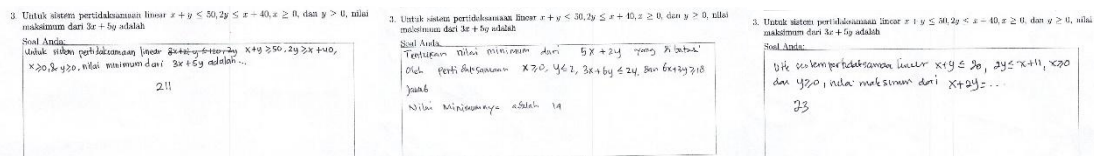 3. Untuk sistem pertidaksamaan linear x + y ≤ 50, 2y ≤ x + 40, x ≥ 0, dan y > 0, nilai
maksimum dari 3x + 5y adalah
Soal Anda:
untuk sistem pertidaksamaan linear x+y ≥ 50, 2y ≥ x + 40,
x ≥ 0, & y ≥ 0, nilai minimum dari 3x + 5y adalah ...
211
3. Untuk sistem pertidaksamaan linear x + y < 50, 2y ≤ x + 40, x ≥ 0, dan y > 0, nilai
maksimum dari 3x + 5y adalah
Soal Anda:
Tentukan nilai minimum dari 5x + 2y yang dibatasi
oleh pertidaksamaan x ≥ 0, y ≤ 2, 3x + 6y ≤ 24, dan 6x + 3y ≥ 18
Jawab
Nilai Minimumnya adalah 14
3. Untuk sistem pertidaksamaan linear x + y ≤ 50, 2y < x + 40, x ≥ 0, dan y ≥ 0, nilai
maksimum dari 3x + 5y adalah
Soal Anda:
sistem pertidaksamaan linear x+y ≤ 20, 2y ≤ x + 11, x ≥ 0
dan y ≥ 0, nilai maksimum dari x + 2y = ...
23